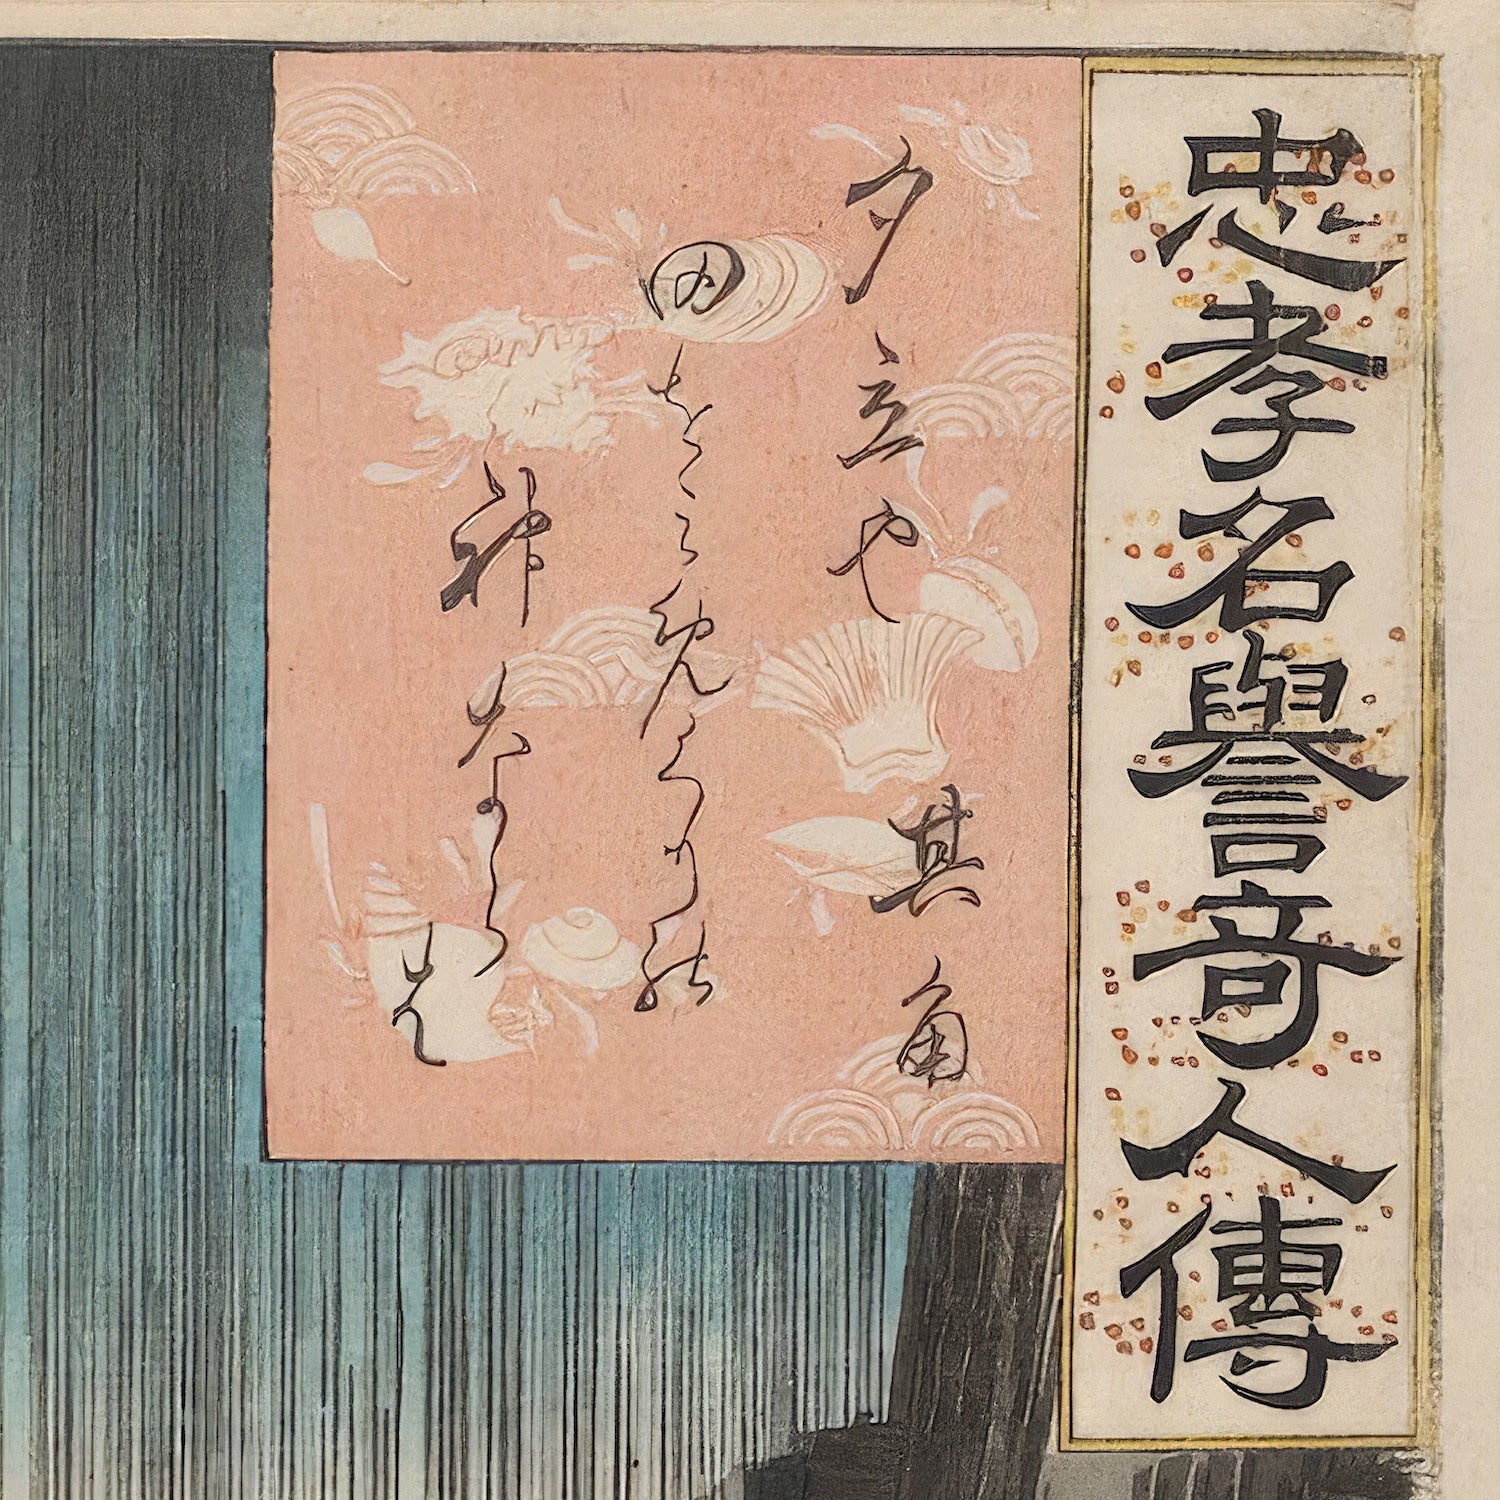 忠孝名譽竒人傳
夕立や 其角
田をみめくりの
神ならは